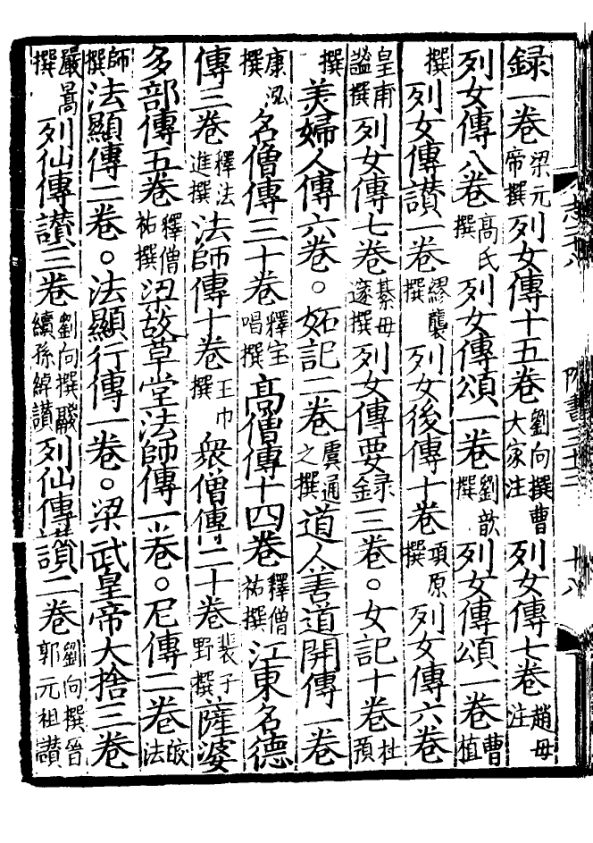 録一卷梁元帝撰列女傳十五卷劉向撰曹大家注列女傳七卷趙母注
列女傳八卷高氏撰列女傳頌一卷劉歆撰列女傳頌一卷曹植
撰列女傳讃一卷繆襲撰列女後傳十卷項原撰列女傳六卷
皇甫謐撰列女傳七卷綦毋邃撰列女傳要録三卷。女記十卷杜預
撰美婦人傳六卷。妬記二卷虞通之撰道人善道開傳一卷
康泓撰名僧傳三十卷釋宝唱撰高僧傳十四卷釋僧祐撰江東名德
傳三卷釋法進撰法師傳十卷王巾撰衆僧傳二十卷裴子野撰薩婆
多部傳五卷釋僧祐撰梁故草堂法師傳一卷。尼傳二卷皎法
師撰法顯傳二卷。法顯行傳一卷。梁武皇帝大捨三卷
嚴暠撰列仙傳讃三卷劉向撰鬷續孫綽讃列仙傳讃二卷劉向撰晉郭元祖讃